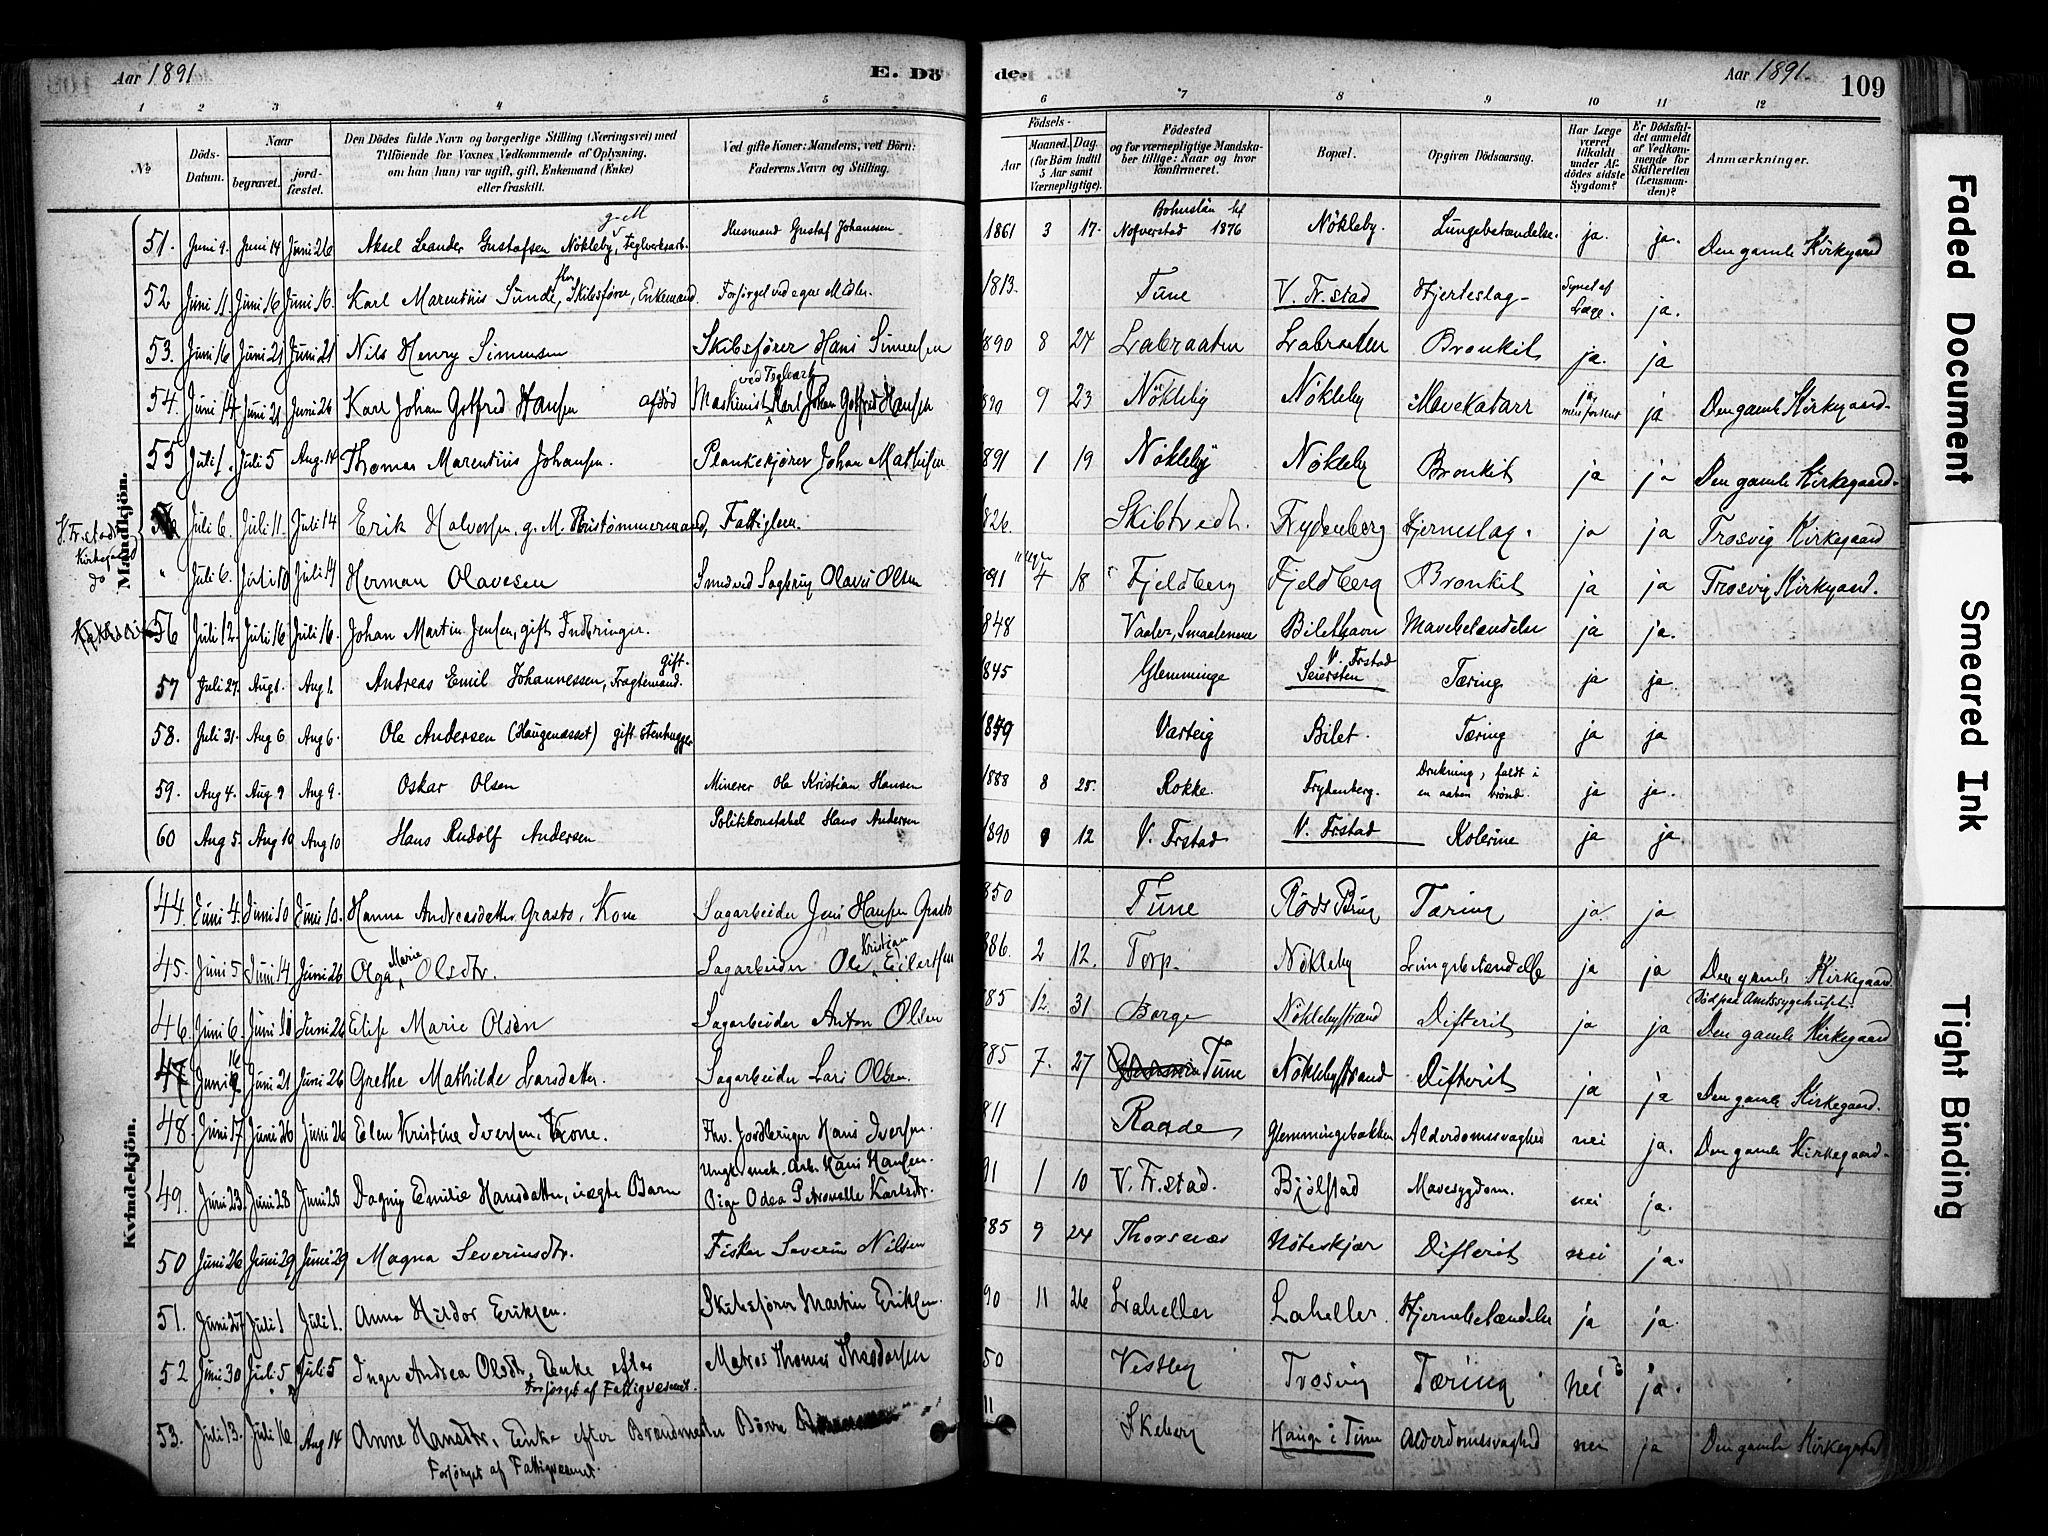 Aar 1891
E. Dö
de.
Aar 1891.
109
1 2 3 4 5 6 7 8 9 10 11 12
No
Döds-Datum.
Naar
begravet.
jord-fæstet.
Den Dödes fulde Navn og borgerlige Stilling (Næringsvei) med
Tilföiende for Voxnes Vedkommende af Oplysning.
om han (hun) var ugift, gift, Enkemand (Enke)
eller fraskilt.
Ved gifte Koner: Mandens, ved Börn:
Faderens Navn og Stilling.
Födsels-
Aar
Maaned. Dag.
(for Börn indtil
5 Aar samt
Værnepligtige).
Födested
og for værnepligtige Mandska-
ber tillige: Naar og hvor
konfirmeret.
Bopæl.
Opgiven Dödsaarsag.
Har Læge
været
tilkaldt
under Af-
dödes sidste
Sygdom?
Er Dödsfal-
det anmeldt
af Vedkom-
mende for
Skifteretten
(Lensman-
den)?
Anmærkninger.
Mandkjön.
51. Juni 9. Juni 14 Juni 26 Aksel Leander Gustafsen Nökleby, g. M. Teglverksarb. Husmand Gustaf Johanssen 1861 3 17. Bohuslän kf Nøfverstad 1876 Nökleby. Lungebetændelse. ja. ja. Den gamle Kirkegaard
52 Juni 11. Juni 16 Juni 16. Karl Marentius Sunde, fhv Skibsfører, Enkemand. Forsörget ved egne Midler. 1813. Tune V. Fr.stad Hjerteslag Synet af Læge. ja.
53. Juni 16 Juni 21 Juni 21 Nils Henry Simensen Skibsfører Hans Simensen 890 8 24 Labraaten Labraaten Bronkit ja. ja
54. Juni 14. Juni 21. Juni 26 Karl Johan Gotfred Hansen afdöd Maskinist ved Teglverk Karl Johan Gotfred Hansen 890 9 23 Nökleby Nökleby Mavekatarr ja, men forsent ja Den gamle Kirkegaard.
55 Juli 1. Juli 5 Aug. 14 Thomas Marentius Johansen. Plankekjører Johan Mathisen 891 1 19 Nökleby Nökleby Bronkit ja ja Den gamle Kirkegaard.
V. Fr.stads Kirkegaard
Juli 6. Juli 11. Juli 14 Erik Halvorsen, g. M. Huustømmermand, Fattiglem. 826. Skibtvedt. Frydenberg Hjerneslag. ja ja Trosvig Kirkegaard
do " Juli 6. Juli 10 Juli 14 Herman Olavesen Smed ved Sagbrug Olaus Olsen 891 4 18 Fjeldberg Fjeldberg Bronkit ja ja Trosvig Kirkegaard.
56 Juli 12. Juli 16 Juli 16. Johan Martin Jensen, gift Indbringer. 848 Vaaler, Smaalenene Bilethavn Mavebetændelse ja ja.
57 Juli 27. Aug 1. Aug 1. Andreas Emil Johannessen, gift. Fragtemand. 845 Glemminge V. Frstad Seiersten Tæring ja ja.
58. Juli 31. Aug 6 Aug 6. Ole Andersen (Haugenæsset) gift Stenhugger 1849 Varteig Bilet. Tæring ja ja
59. Aug 4. Aug 9 Aug 9. Oskar Olsen Minerer Ole Kristian Hansen 1888 8 25. Rokke. Frydenberg. Drukning, faldt i en aaben brönd. ja ja.
60 Aug 5. Aug 10 Aug 10 Hans Rudolf Andersen Politikonstabel Hans Andersen 1890 9 12 V. Frstad V. Frstad Kolerine ja ja
Kvindekjön.
44. Juni 4. Juni 10 Juni 10. Hanna Andreasdatter Grasto, Kone Sagarbeider Jens Hansen Grasto 850 Tune Röds Brug Tæring ja ja
45. Juni 5 Juni 14 Juni 26 Olga Marie Olsdtr. Sagarbeider Ole Kristian Eilertsen 886. 2 12. Torp. Nökleby Lungebetændelse ja ja Den gamle Kirkegaard
46. Juni 6. Juni 10 Juni 26 Elise Marie Olsen Sagarbeider Anton Olsen 885 12. 31 Borge Nöklebystrand Difterit ja ja Död paa Amtssygehuset. Den gamle Kirkegaard
47 Juni 16 Juni 21 Juni 26 Grethe Mathilde Larsdatter. Sagarbeider Lars Olsen. 885 7. 27 Tune Nöklebystrand Difterit ja ja Den gamle Kirkegaard.
48. Juni 17 Juni 26 Juni 26 Elen Kristine Iversen, Kone. Fhv. Jordbruger Hans Iversen. 811 Raade Glemmingebakken Alderdomssvaghed nei ja. Den gamle Kirkegaard.
49. Juni 23. Juni 28 Juni 28 Dagny Emilie Hansdatter, uægte Barn Ungk. mek. Arb. Hans Hansen. Pige Odea Petronelle Karlsdtr. 91 1 10 V. Fr.stad. Bjölstad Mavesygdom. nei ja.
50 Juni 26 Juni 29 Juni 29 Magna Severinsdtr. Fisker Severin Nilsen 885 9 24 Thorsnæs Höteskjær Difterit nei ja.
51. Juni 27 Juli 1 Juli 1. Anna Hildor Eriksen. Skibsfører Martin Eriksen. 90 11 26 Laheller Laheller. Hjernebetændelse ja ja.
52 Juni 30 Juli 5 Juli 5 Inger Andrea Olsdtr. Enke efter Matros Thomas Theodorsen 50 Vestby Trosvig Tæring nei ja.
Forsörget af Fattigvæsenet.
53. Juli 13. Juli 16. Aug 14 Anne Hansdtr, Enke efter Brandmester Börre 11 Skeberg Hauge i Tune Alderdomssvaghed nei ja Den gamle Kirkegaard
Forsörget af Fattigvæsenet.
Faded Document
Smeared Ink
Tight Binding